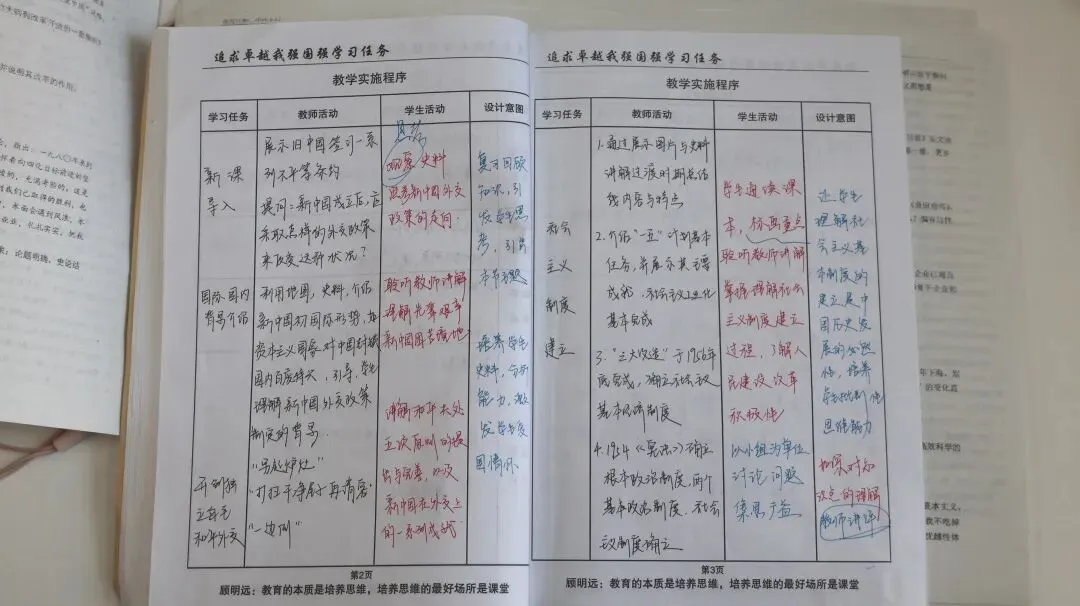 追求卓越我强国强学习任务
教学实施程序
学习任务
教师活动
学生活动
设计意图
新课
导入
展示旧中国签订一系
列不平等条约
提问：新中国成立后，应
采取怎样的外交政策
来改变这种状况？
观察史料
思考新中国外交
政策的走向
复习回顾
知识，引
发学生思
考，引出
本节主题
国际国内
背景介绍
利用地图，史料，介绍
新中国初国际形势，如
资本主义国家对中国封锁
国内百废待兴，引导学生
理解新中国外交政策
制定的背景
聆听教师讲解
理解先辈艰辛
培养学生
史料，分析
能力，激
发学生爱
国情怀
开创独
立自主
和平外交
"另起炉灶"
"打扫干净屋子再请客"
"一边倒"
讲解和平共处
五项原则的提
出与完善，以及
新中国在外交上
的一系列成就
第2页
顾明远：教育的本质是培养思维，培养思维的最好场所是课堂
追求卓越我强国强学习任务
教学实施程序
学习任务
教师活动
学生活动
设计意图
社会
主义
制度
建立
1.通过展示图片与史料
讲解过渡时期总路
线内容与特点
2.介绍"一五"计划基本
任务，并展示其主要
成就，社会主义工业化
基本完成
3."三大改造"于1956年
底完成，确立社会主义
基本经济制度
4.1954《宪法》确立
根本政治制度，两个
基本政治制度，社会主
义制度确立
学生通读课
本，标画重点
聆听教师讲解
掌握理解社会
主义制度建立
过程，了解人
民建设改革
积极性
以小组为单位
讨论问题
集思广益
让学生
理解社
会主义基
本制度的
建立是中
国历史发
展的必然
性，培养
学生批判性
思维能力
加深对知
识点的理解
教师讲评
第3页
顾明远：教育的本质是培养思维，培养思维的最好场所是课堂